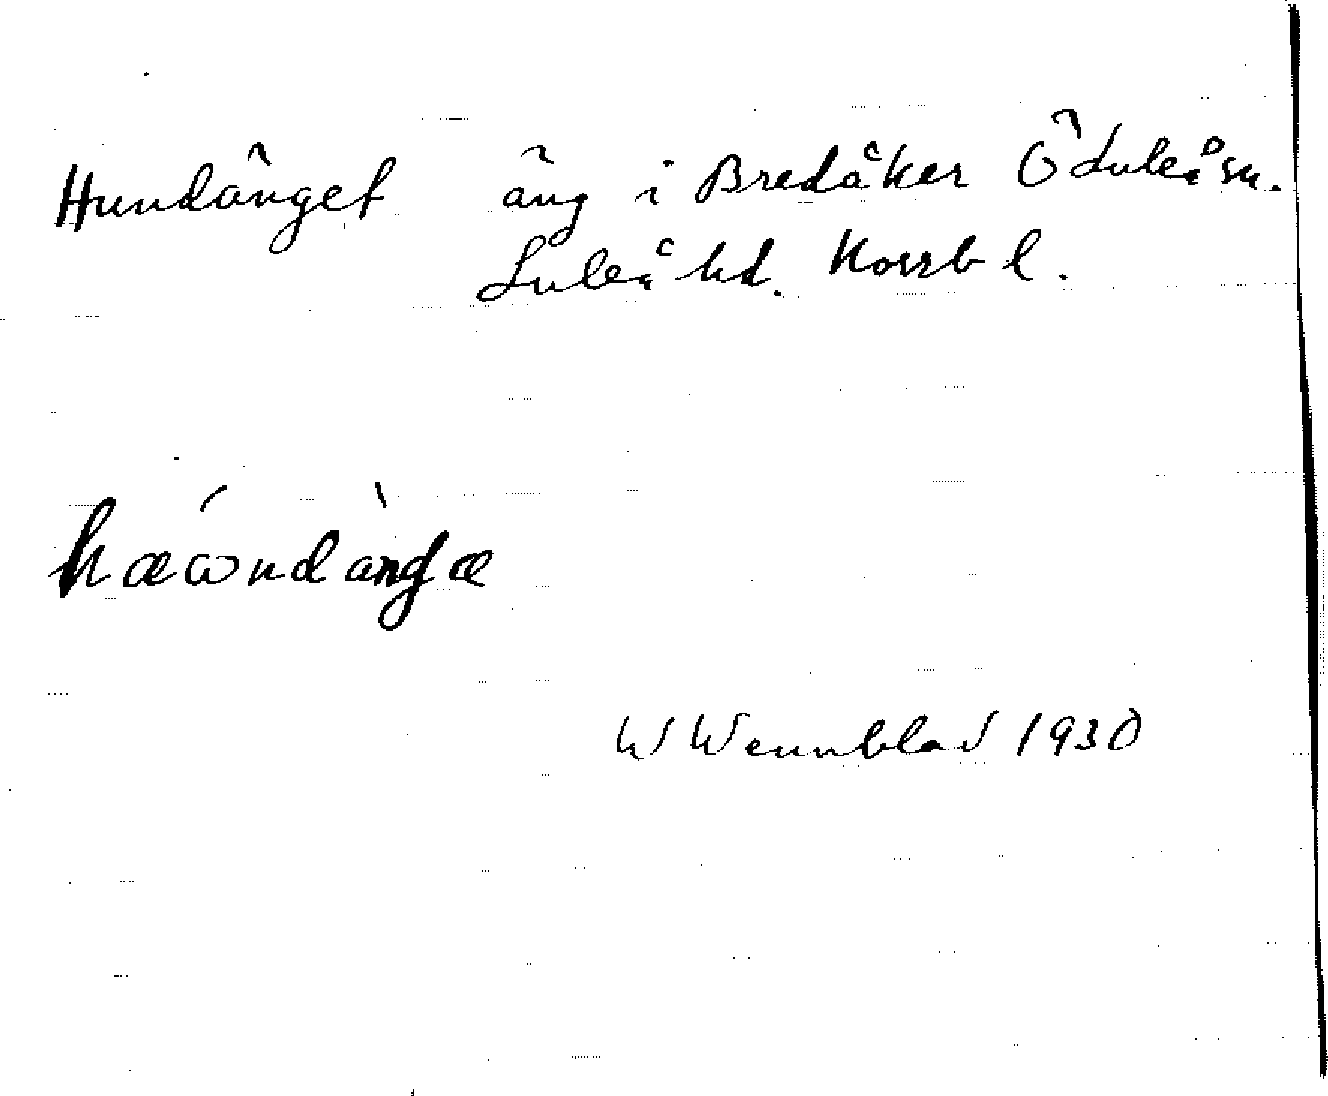 Hundänget äng i Bredåker Ö Luleå sn.
Luleå hd. Norrb l.
hæωndàngæ
W Wennblad 1930